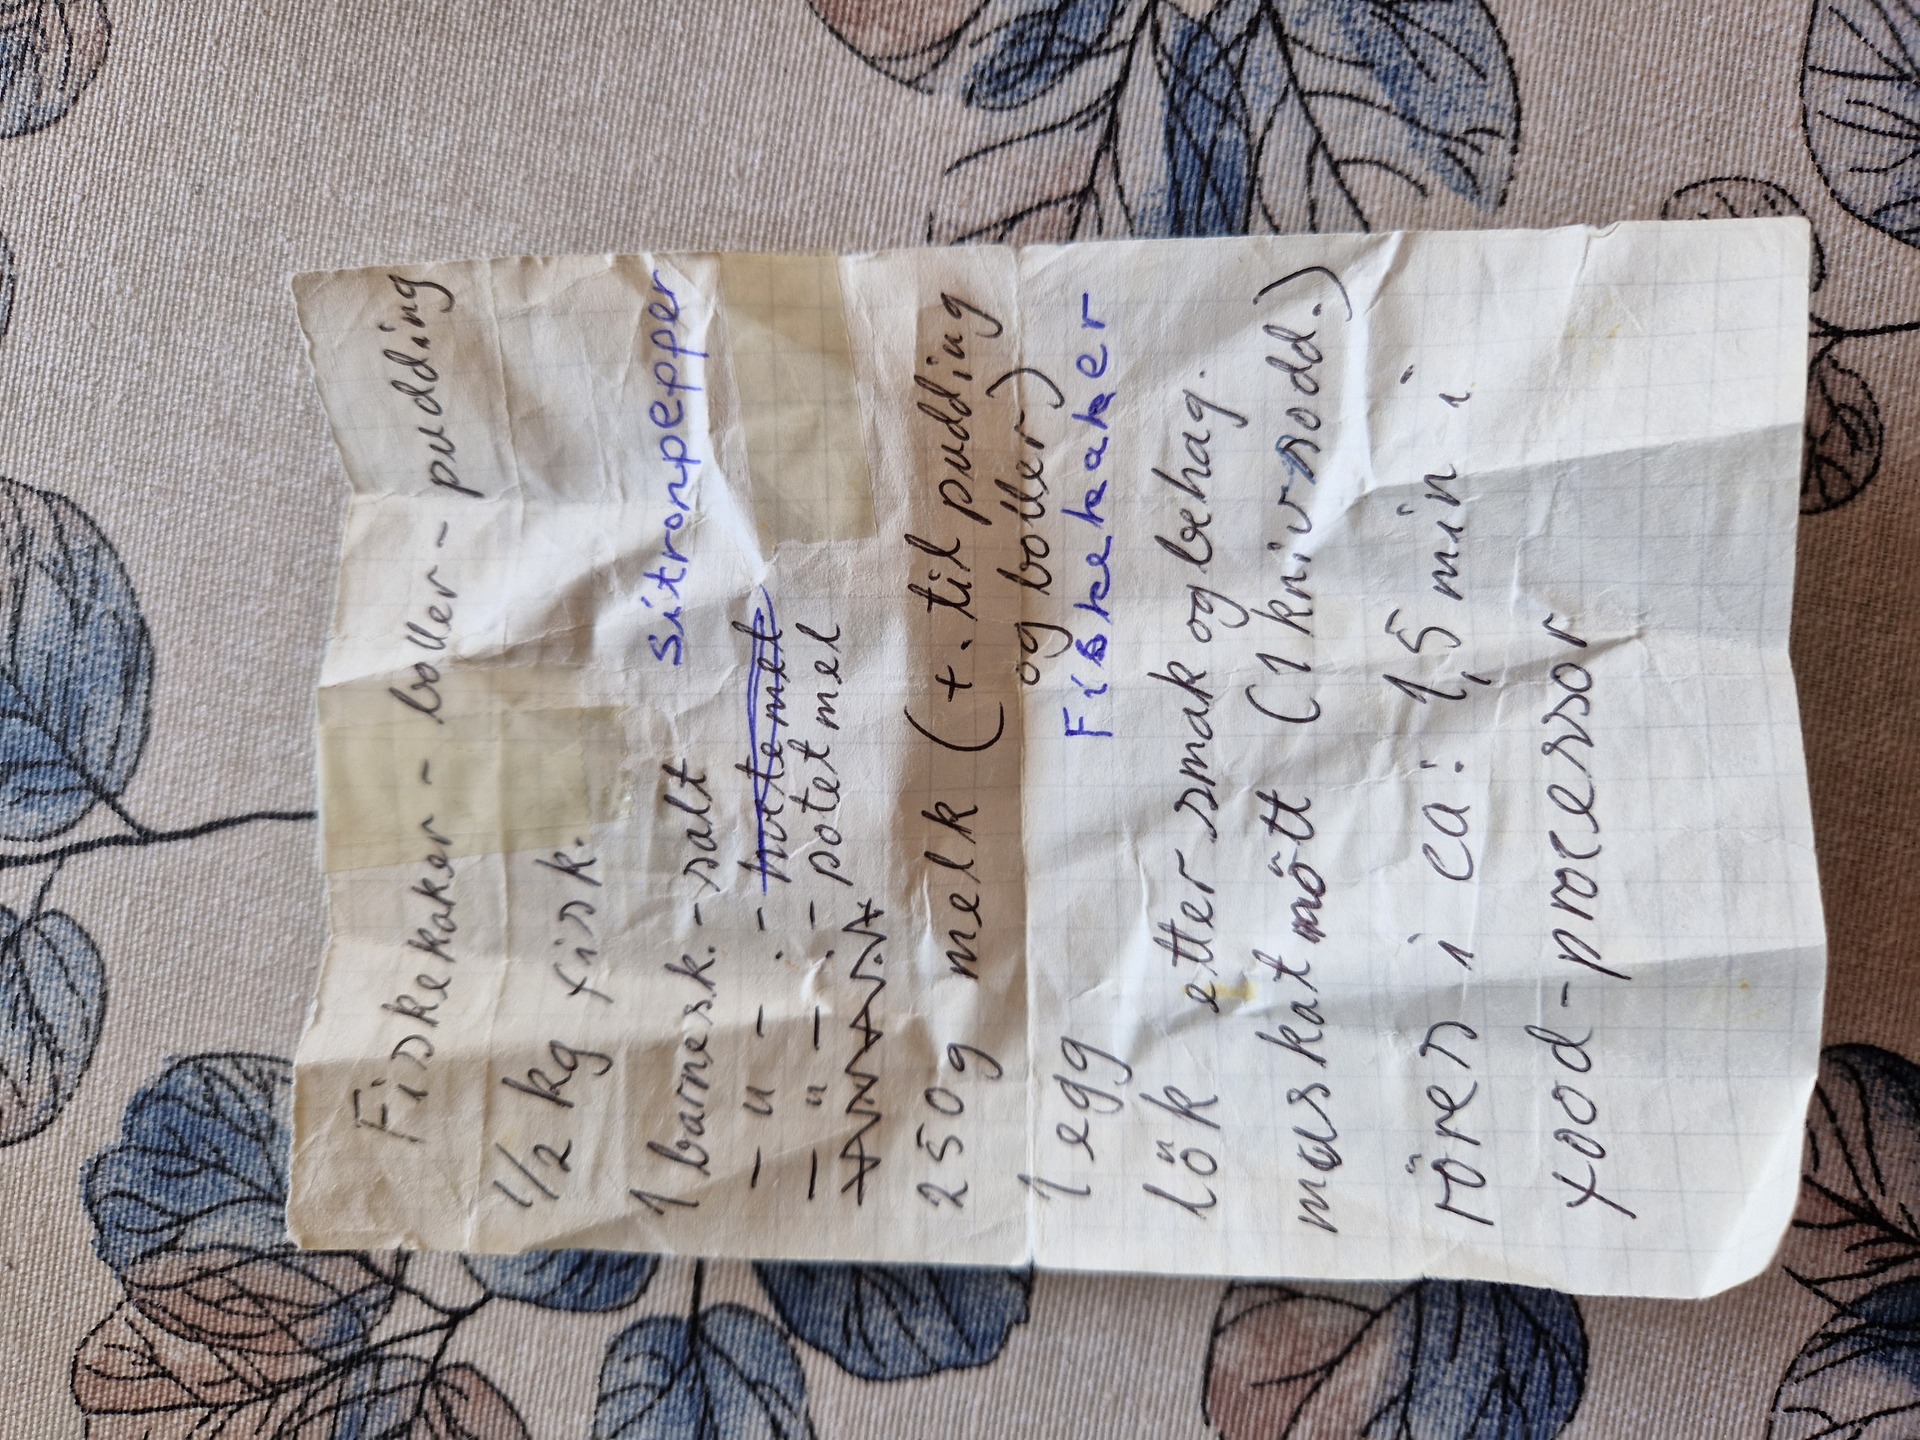 Fiskekaker - boller - pudding
1/2 kg fisk.
sitronpepper
1 barnesk. - salt
- " - . - hvetemel
- " - . - potetmel
250g melk (+. til pudding
og boller)
1 egg
Fiskekaker
lök etter smak og behag.
muskatnött (1 knivsodd.)
röres i ca: 1,5 min i
food-processor